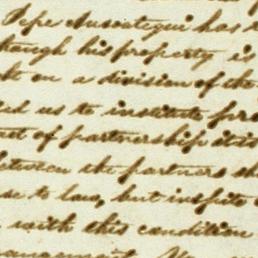 Pepe Ausategui has
though his property is
on a division of the
us to institute
of partnership
between the partners
to law, but inspite
with this condition